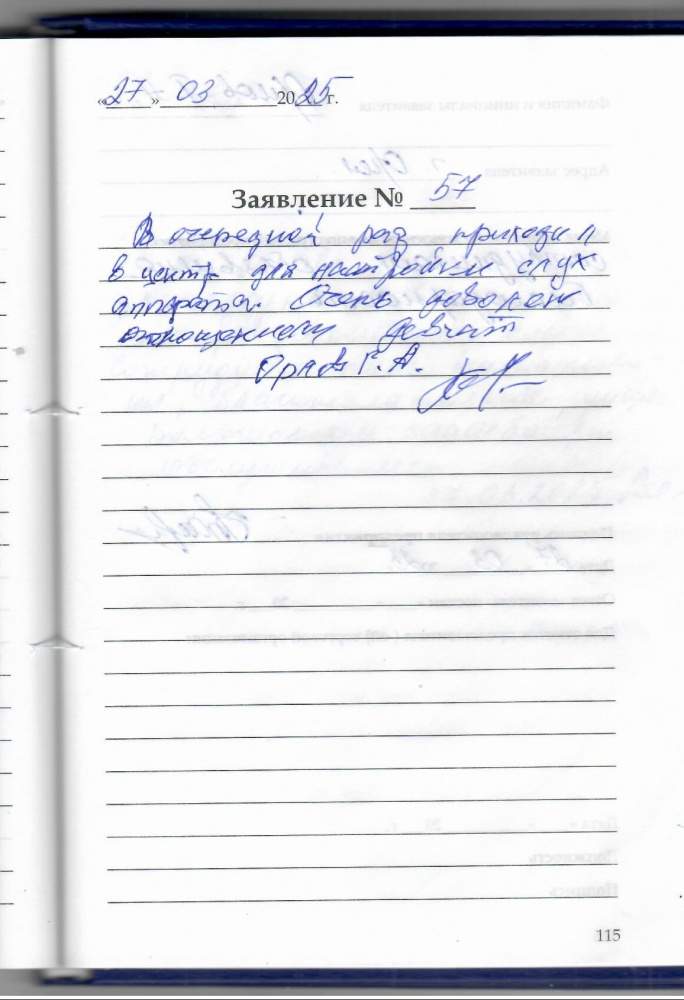 «27» 03 2025 г.
Заявление № 57
В очередной раз приходил
в центр для настройки слух
аппарата. Очень доволен
отношением девчат
Г. А.
115